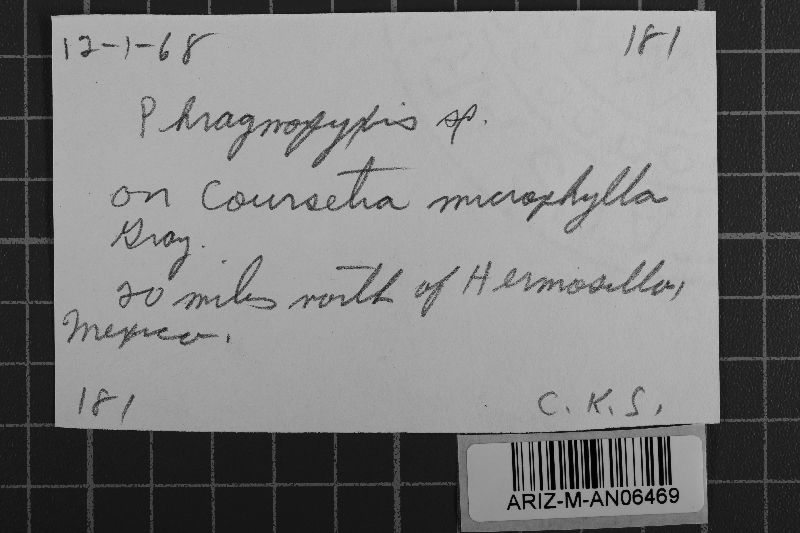 12-1-68 181
Phragmopyxis sp.
on Coursetia microphylla
Gray.
20 miles north of Hermosillo,
Mexico.
181 C. K. S.
ARIZ-M-AN06469